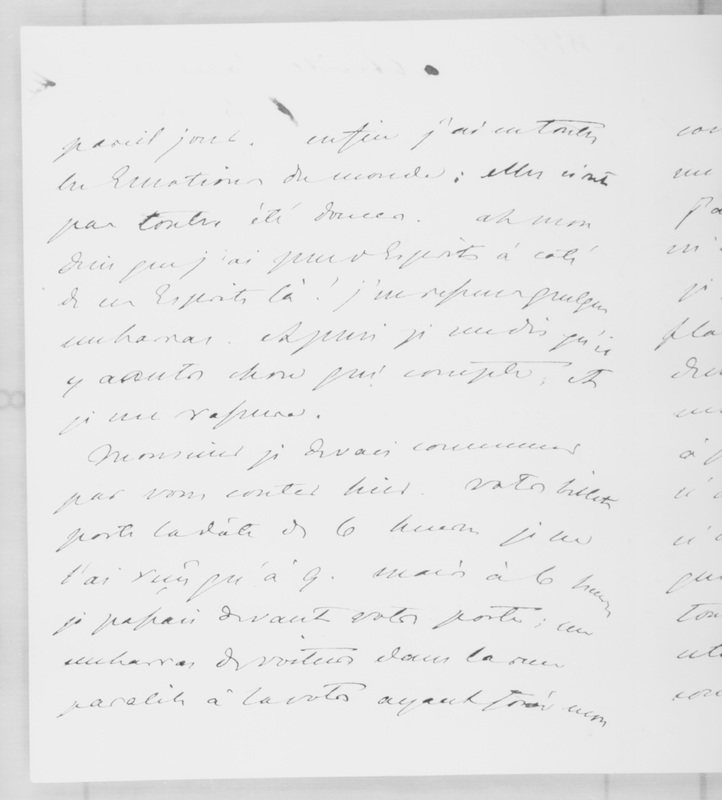 pareil jour. enfin j'ai eu toutes
les Emotions du monde ; elles n'ont
pas toutes été douces. ah mon
dieu que j'ai peu d'Esprits à coté
de ces Esprits là !
embarras. et puis je me dis qu'il
y a autre chose qui compte, et
je me rassure.
Monsieur je devais commencer
par vous conter hier. votre billet
porte la date de 6 heures je ne
l'ai reçu qu'à 9. mais à 6 heures
je passais devant votre porte ; un
embarras de voitures dans la rue
parallèle à la votre ayant forcé mon